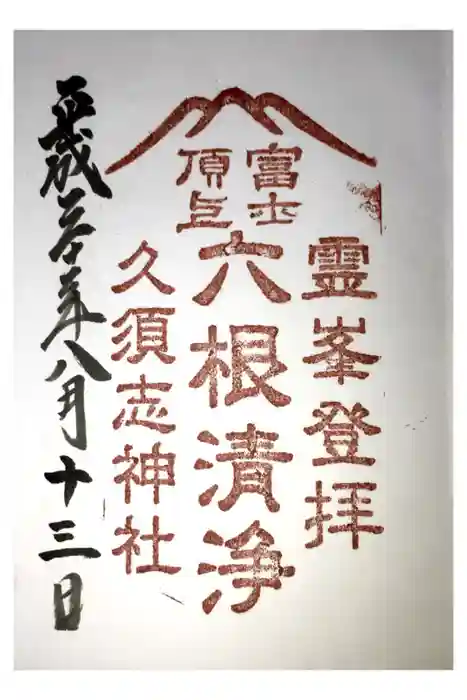 霊峯登拝
富士
頂上
六根清浄
久須志神社
平成三十年八月十三日